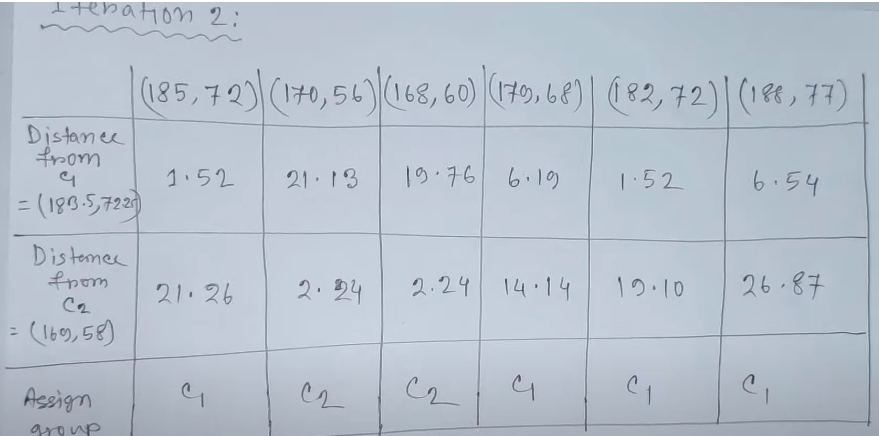 Iteration 2:
(185,72) (170,56) (168,60) (179,68) (182,72) (188,77)
Distance
from
C1
= (183.5,72.25)
1.52 21.13 19.76 6.19 1.52 6.54
Distance
from
C2
= (169,58)
21.26 2.24 2.24 14.14 19.10 26.87
Assign
group
C1 C2 C2 C1 C1 C1